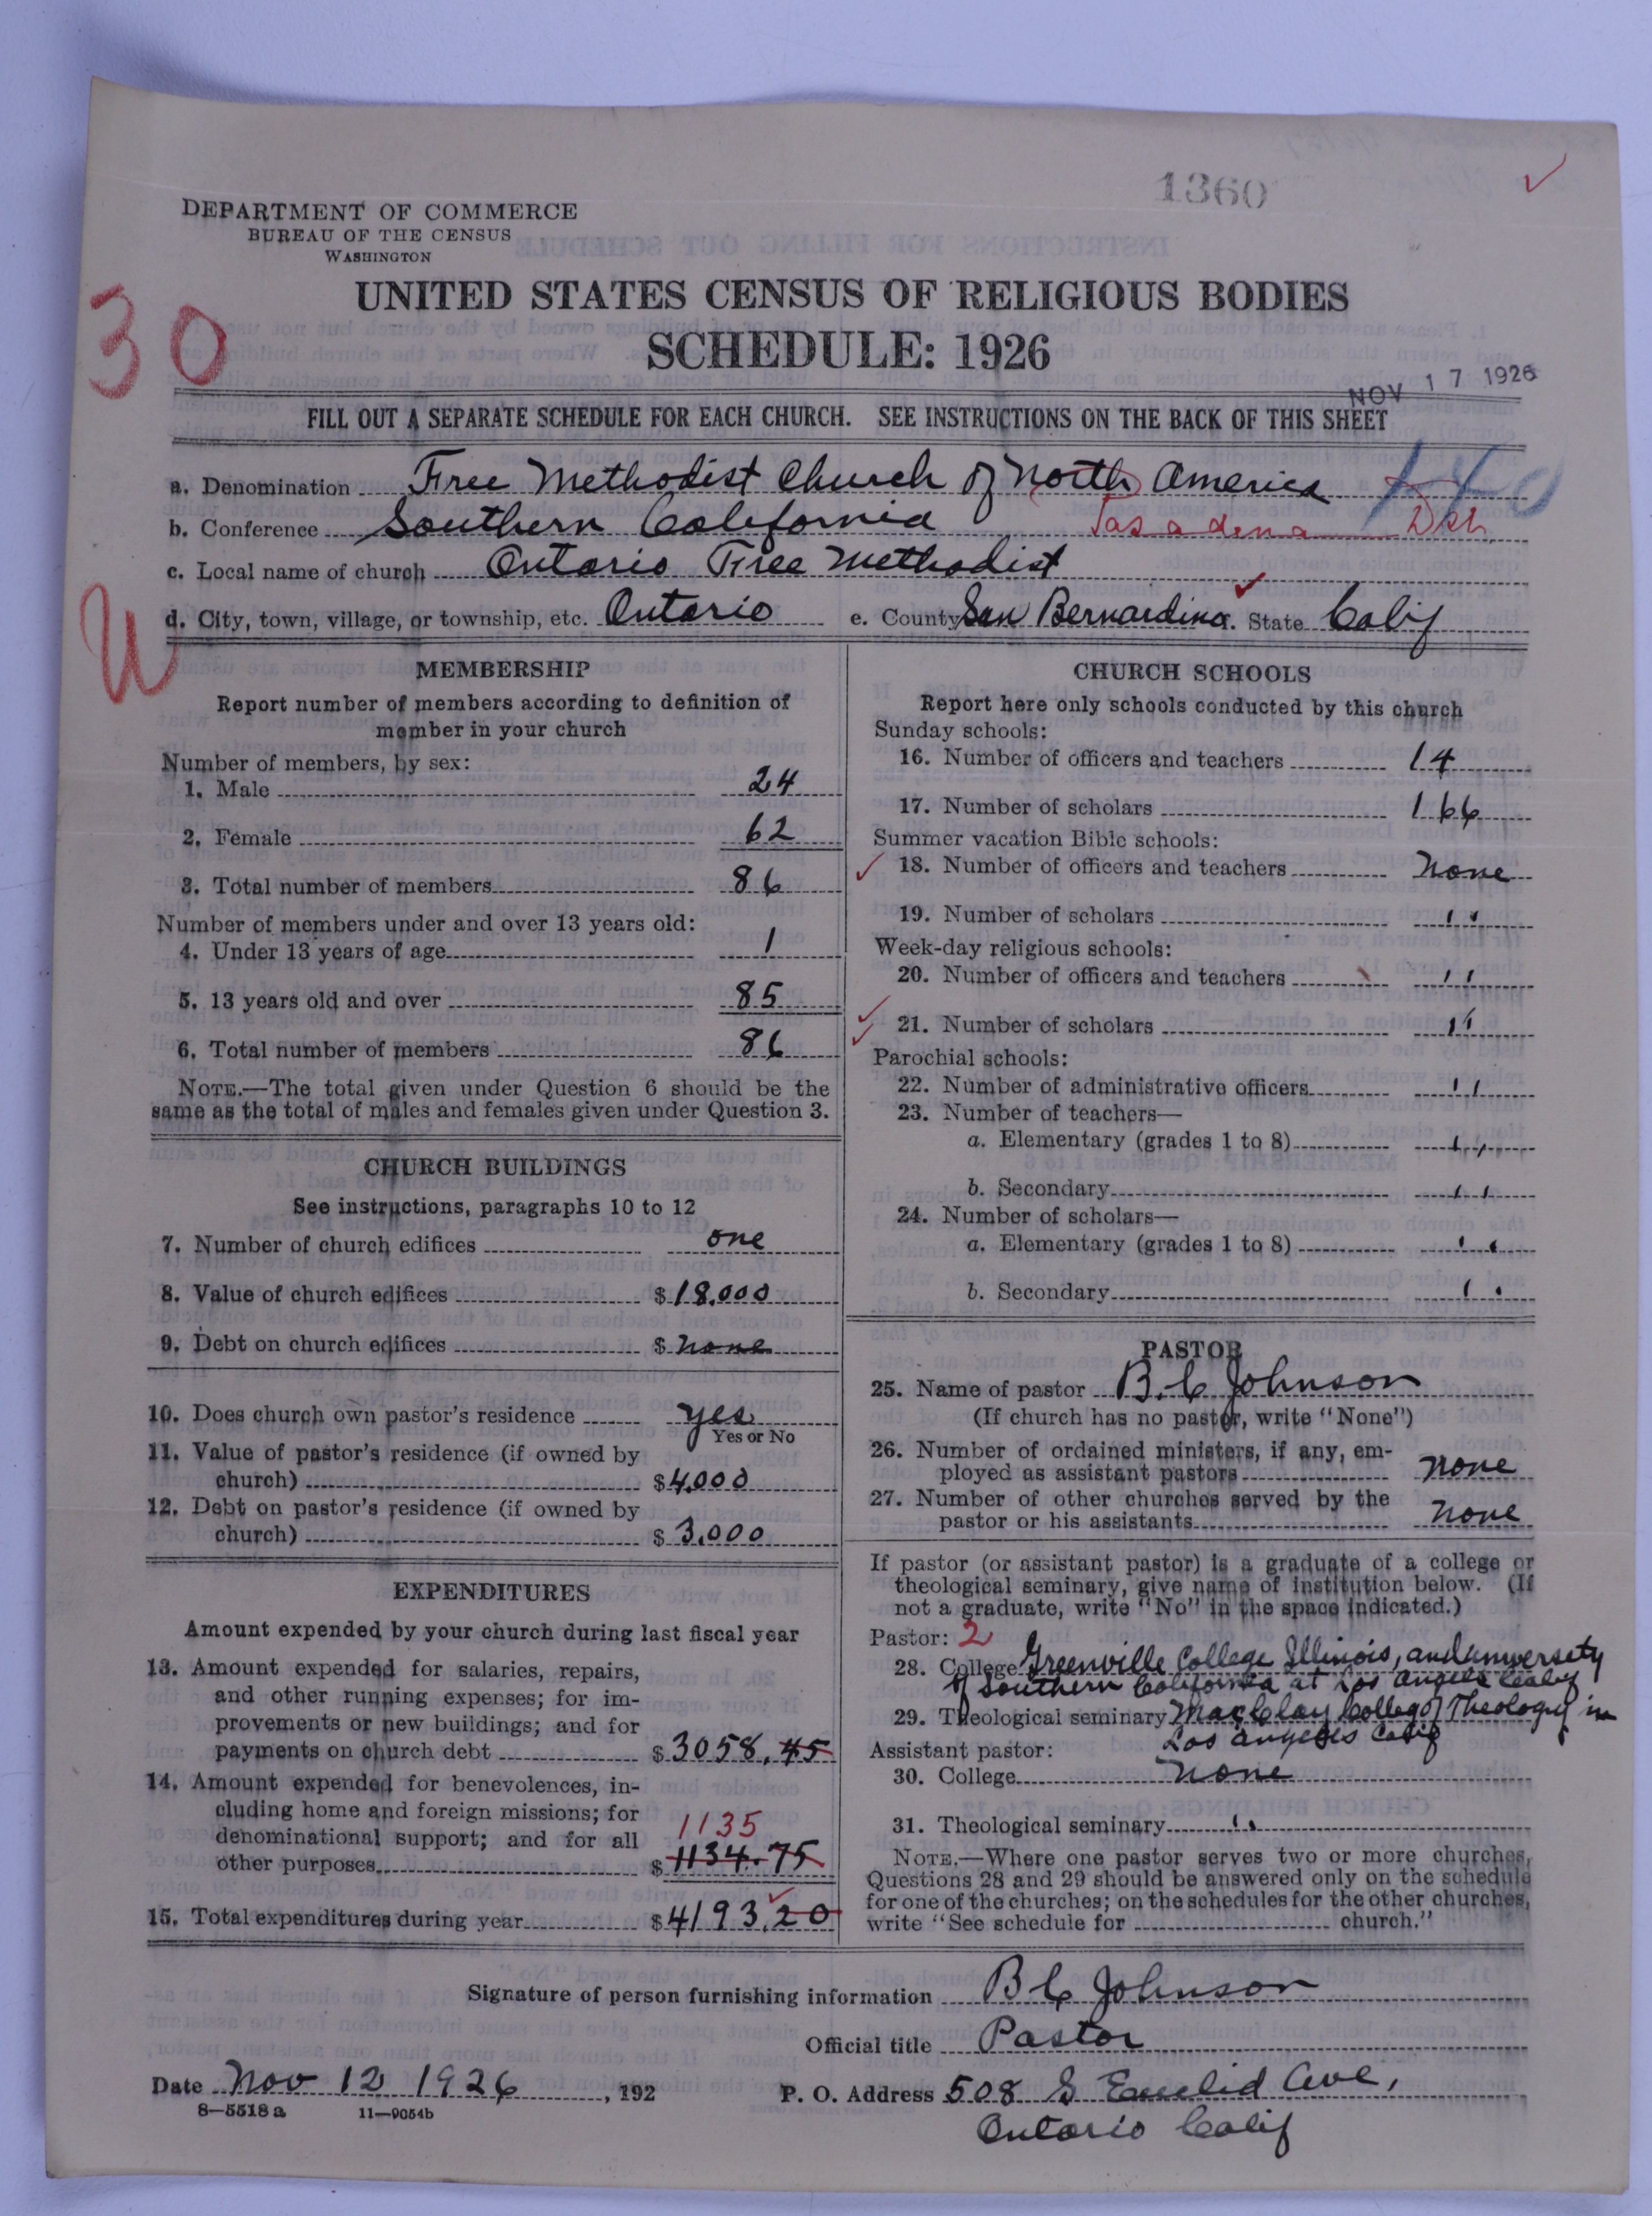 1360
DEPARTMENT OF COMMERCE
BUREAU OF THE CENSUS
WASHINGTON
UNITED STATES CENSUS OF RELIGIOUS BODIES
30
SCHEDULE: 1926
NOV 17 1926
FILL OUT A SEPARATE SCHEDULE FOR EACH CHURCH. SEE INSTRUCTIONS ON THE BACK OF THIS SHEET
a. Denomination Free Methodist Church of North America
b. Conference Southern California Pasadena Dist.
c. Local name of church Ontario Free Methodist
d. City, town, village, or township, etc. Ontario e. County San Bernardino. State Calif
U
MEMBERSHIP
Report number of members according to definition of
member in your church
Number of members, by sex:
1. Male 24
2. Female 62
3. Total number of members 86
Number of members under and over 13 years old:
4. Under 13 years of age 1
5. 13 years old and over 85
6. Total number of members 86
NOTE.—The total given under Question 6 should be the
same as the total of males and females given under Question 3.
CHURCH BUILDINGS
See instructions, paragraphs 10 to 12
7. Number of church edifices one
8. Value of church edifices $18,000
9. Debt on church edifices $ none
10. Does church own pastor's residence yes
Yes or No
11. Value of pastor's residence (if owned by
church) $4,000
12. Debt on pastor's residence (if owned by
church) $3,000
EXPENDITURES
Amount expended by your church during last fiscal year
13. Amount expended for salaries, repairs,
and other running expenses; for im-
provements or new buildings; and for
payments on church debt $3058.45
14. Amount expended for benevolences, in-
cluding home and foreign missions; for
denominational support; and for all 1135
other purposes $1134.75
15. Total expenditures during year $4193.20
CHURCH SCHOOLS
Report here only schools conducted by this church
Sunday schools:
16. Number of officers and teachers 14
17. Number of scholars 166
Summer vacation Bible schools:
18. Number of officers and teachers None
19. Number of scholars "
Week-day religious schools:
20. Number of officers and teachers "
21. Number of scholars "
Parochial schools:
22. Number of administrative officers "
23. Number of teachers—
a. Elementary (grades 1 to 8) "
b. Secondary "
24. Number of scholars—
a. Elementary (grades 1 to 8) "
b. Secondary "
PASTOR
25. Name of pastor B. C Johnson
(If church has no pastor, write "None")
26. Number of ordained ministers, if any, em-
ployed as assistant pastors None
27. Number of other churches served by the
pastor or his assistants None
If pastor (or assistant pastor) is a graduate of a college or
theological seminary, give name of institution below. (If
not a graduate, write "No" in the space indicated.)
Pastor: 2
28. College Greenville College Illinois, and University
of Southern California at Los Angeles Calif
29. Theological seminary MacClay College of Theology in
Los Angeles Calif
Assistant pastor:
30. College None
31. Theological seminary "
NOTE.—Where one pastor serves two or more churches,
Questions 28 and 29 should be answered only on the schedule
for one of the churches; on the schedules for the other churches,
write "See schedule for church."
Signature of person furnishing information B C Johnson
Official title Pastor
Date Nov 12 1926, 192 P. O. Address 508 S Euclid Ave,
8—5518a 11—9054b
Ontario Calif